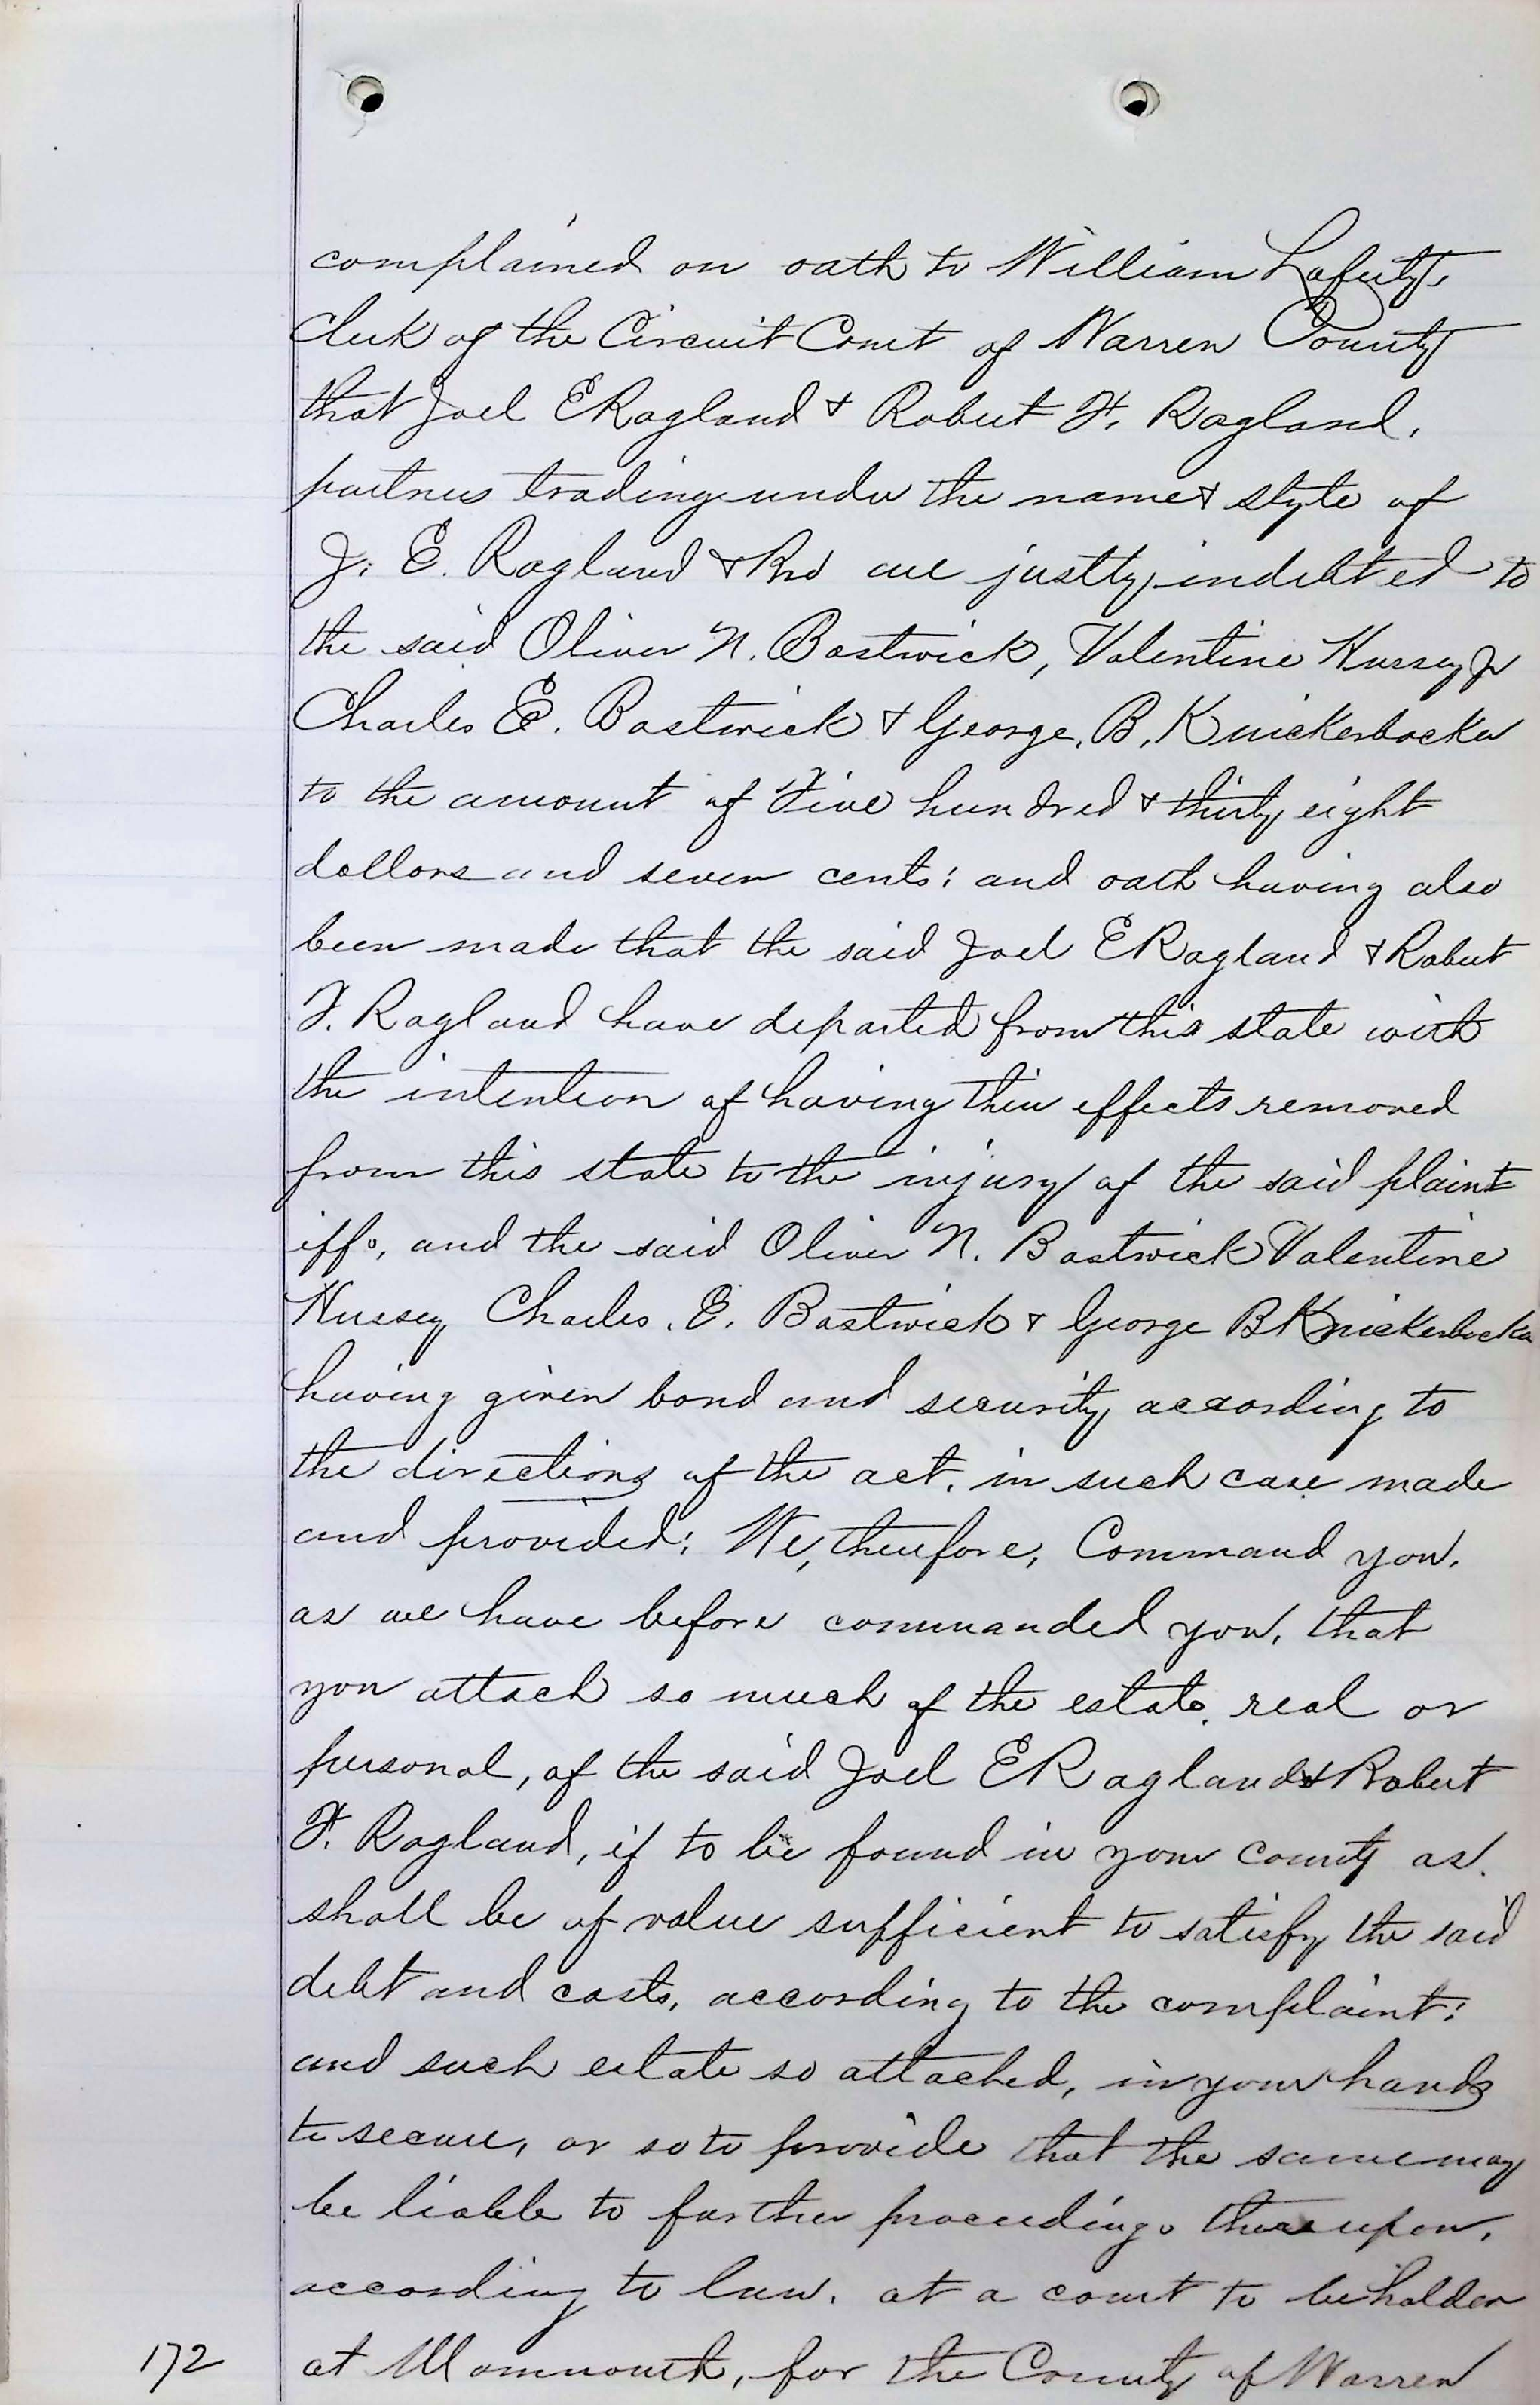 complained on oath to William Laferty,
clerk of the Circuit Court of Warren County
that Joel E Ragland & Robert F. Ragland,
partners trading under the name & style of
J. E. Ragland & Bro are justly indebted to
the said Oliver N. Bostwick, Valentine Hussey Jr
Charles E. Bostwick & George. B. Knickerbocker
to the amount of Five hundred & thirty eight
dollars and seven cents; and oath having also
been made that the said Joel E Ragland & Robert
F. Ragland have departed from this state with
the intention of having their effects removed
from this state to the injury of the said plaint
iffs, and the said Oliver N. Bostwick Valentine
Hussey Charles. E. Bostwick & George B Knickerbocker
having given bond and security according to
the directions of the act, in such case made
and provided; We, therefore, Command you,
as we have before commanded you, that
you attach so much of the estate, real or
personal, of the said Joel E Ragland & Robert
F. Ragland, if to be found in your county as
shall be of value sufficient to satisfy the said
debt and costs, according to the complaint:
and such estate so attached, in your hands
to secure, or so to provide that the same may
be liable to further proceedings thereupon,
according to law, at a court to be holden
172 at Monmouth, for the County of Warren